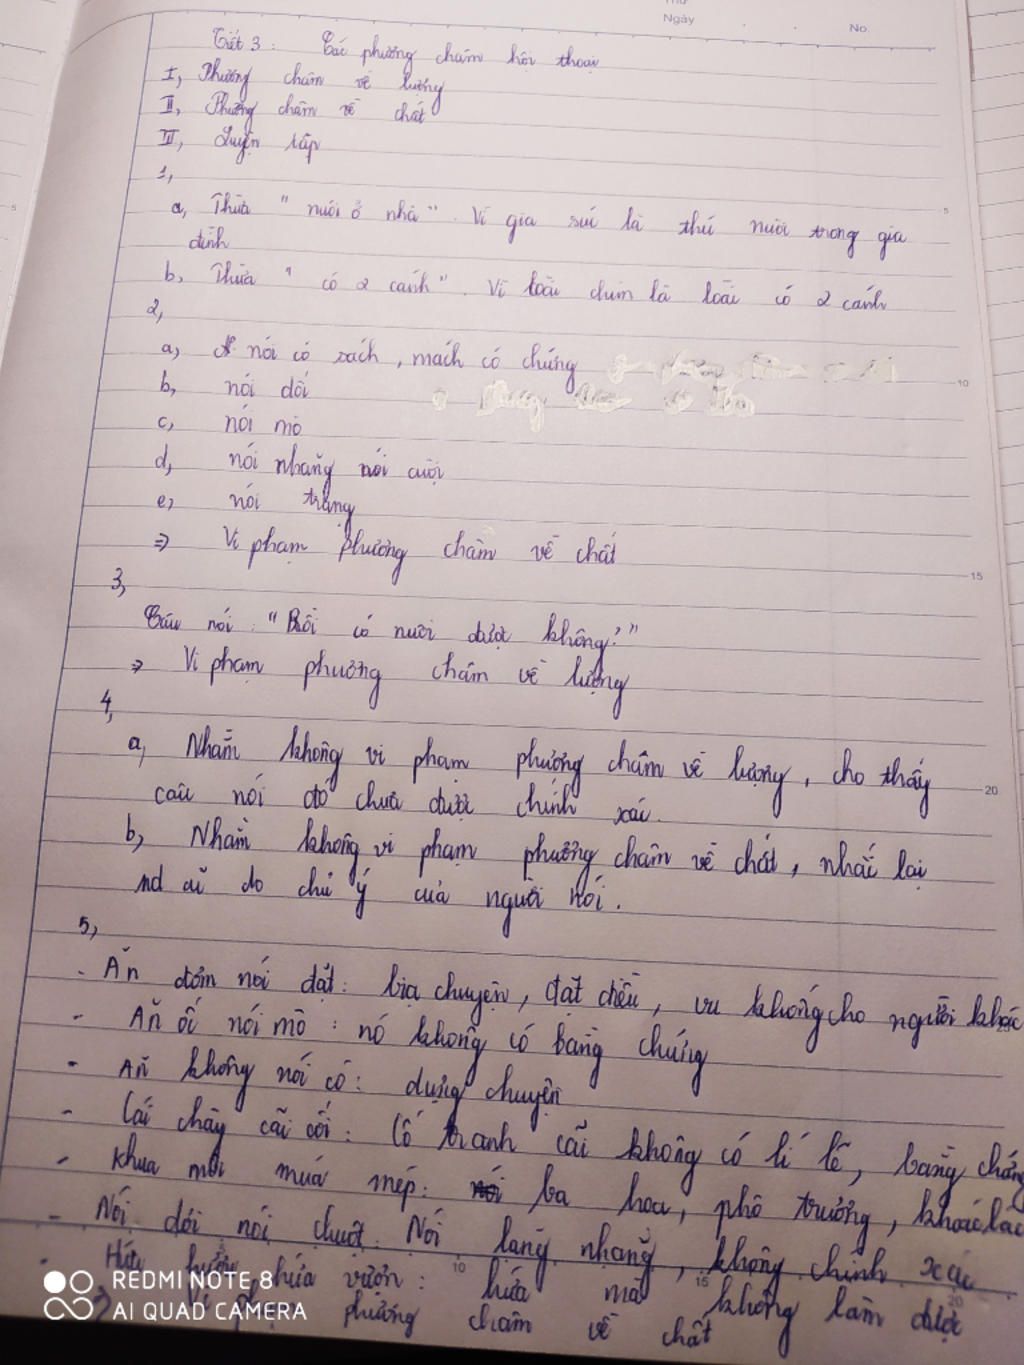 Thứ
Ngày
No.
Tiết 3: Các phương châm hội thoại
I, Phương châm về lượng
II, Phương châm về chất
III, Luyện tập
1,
a, Thừa "nuôi ở nhà". Vì gia súc là thú nuôi trong gia
đình
b, Thừa "có 2 cánh". Vì loài chim là loài có 2 cánh
2,
a, nói có sách, mách có chứng
b, nói dối
c, nói mò
d, nói nhăng nói cuội
e, nói trạng
=> Vi phạm phương châm về chất
3,
Câu nói: "Rồi có nuôi được không?"
=> Vi phạm phương châm về lượng
4,
a, Nhằm không vi phạm phương châm về lượng, cho thấy
câu nói đó chưa được chính xác.
b, Nhằm không vi phạm phương châm về chất, nhắc lại
nd cũ do chủ ý của người nói.
5,
- Ăn đơm nói đặt: bịa chuyện, đặt điều, vu khống cho người khác
- Ăn ốc nói mò: nó không có bằng chứng
- Ăn không nói có: dựng chuyện
- Cãi chày cãi cối: Cố tranh cãi không có lí lẽ, bằng chứng
- Khua môi múa mép: ba hoa, phô trương, khoác lác
- Nói dơi nói chuột. Nói lăng nhăng, không chính xác
- Hứa hươu hứa vượn: hứa mà không làm được
=> Vi phạm phương châm về chất
5
10
15
20
25
10
15
20
REDMI NOTE 8
AI QUAD CAMERA